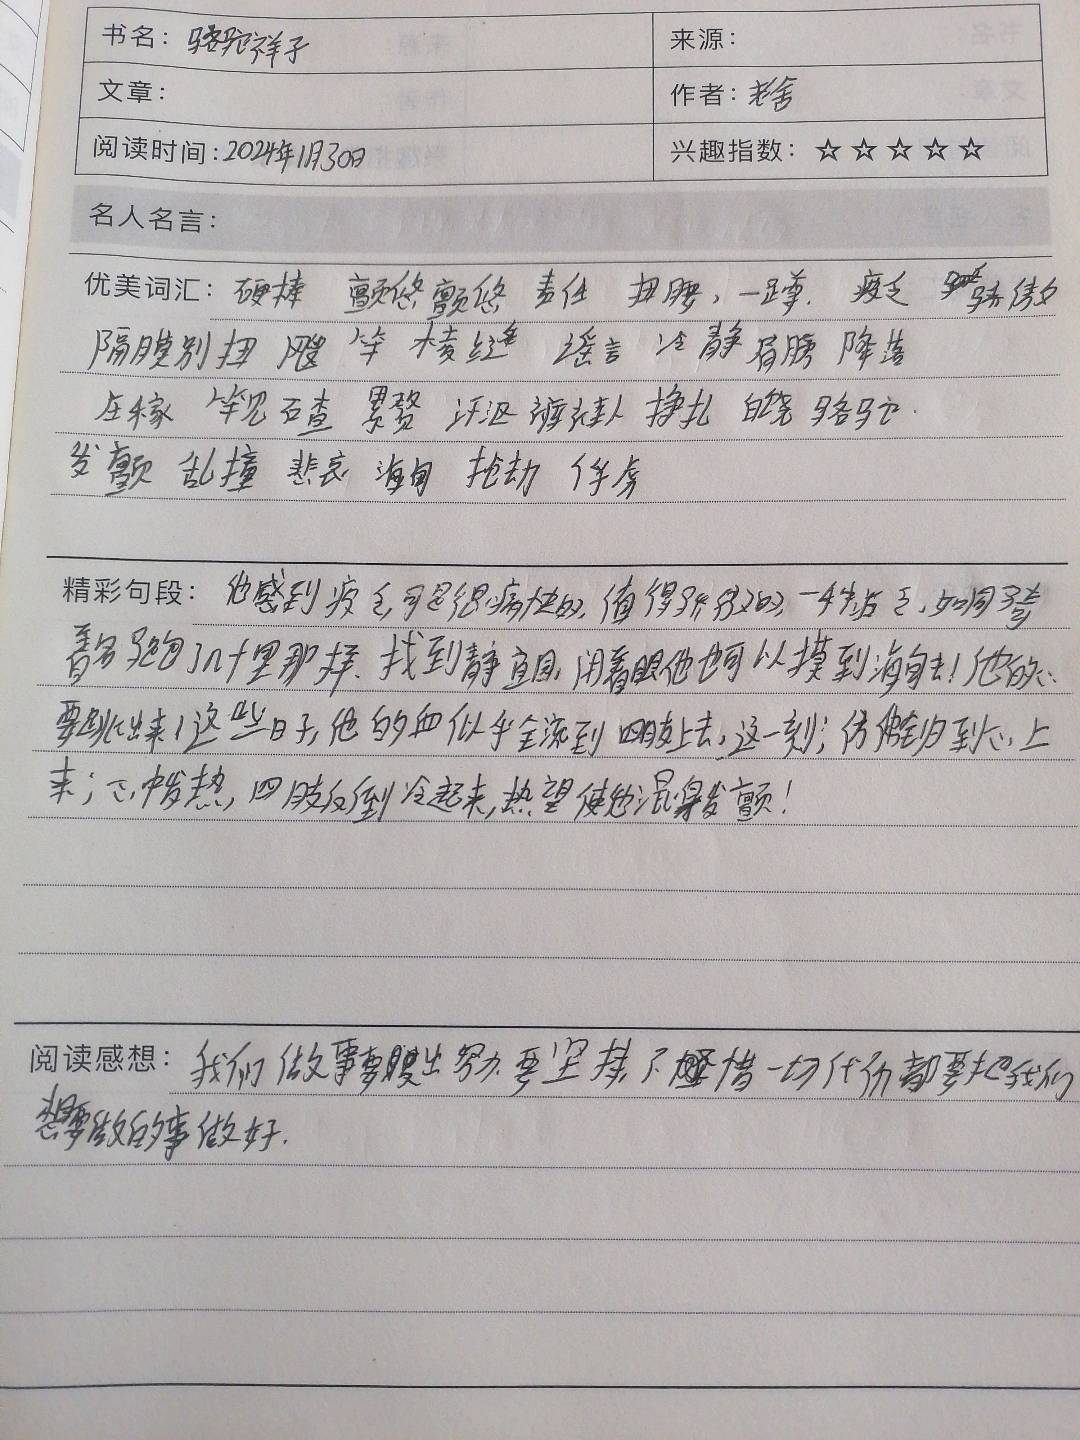 书名：骆驼祥子 来源：
文章： 作者：老舍
阅读时间：2024年1月30日 兴趣指数：☆☆☆☆☆
名人名言：
优美词汇：硬棒 颤悠颤悠 责任 扭腰，一蹲．疲乏 骄傲
隔膜别扭 飕 竿 棱缝 谣言 冷静 肩膀 降落
庄稼 罕见 石渣 累赘 汗泅 裤裆 挣扎 白饶 骆驼．
发颤 乱撞 悲哀 海甸 抢劫 俘虏
精彩句段：他感到疲乏，可是很痛快的，值得骄傲的，一种疲乏，如同骑
着名马跑了几十里那样．找到静宜园，闭着眼他也可以摸到海甸去！他的心
要跳出来！这些日子，他的血似乎全流到四肢上去，这一刻；仿佛全归到心上
来；心中发热，四肢反倒冷起来，热望使他混身发颤！
阅读感想：我们做事要付出努力．要坚持．不惜一切代价都要把我们
想要做的事做好．